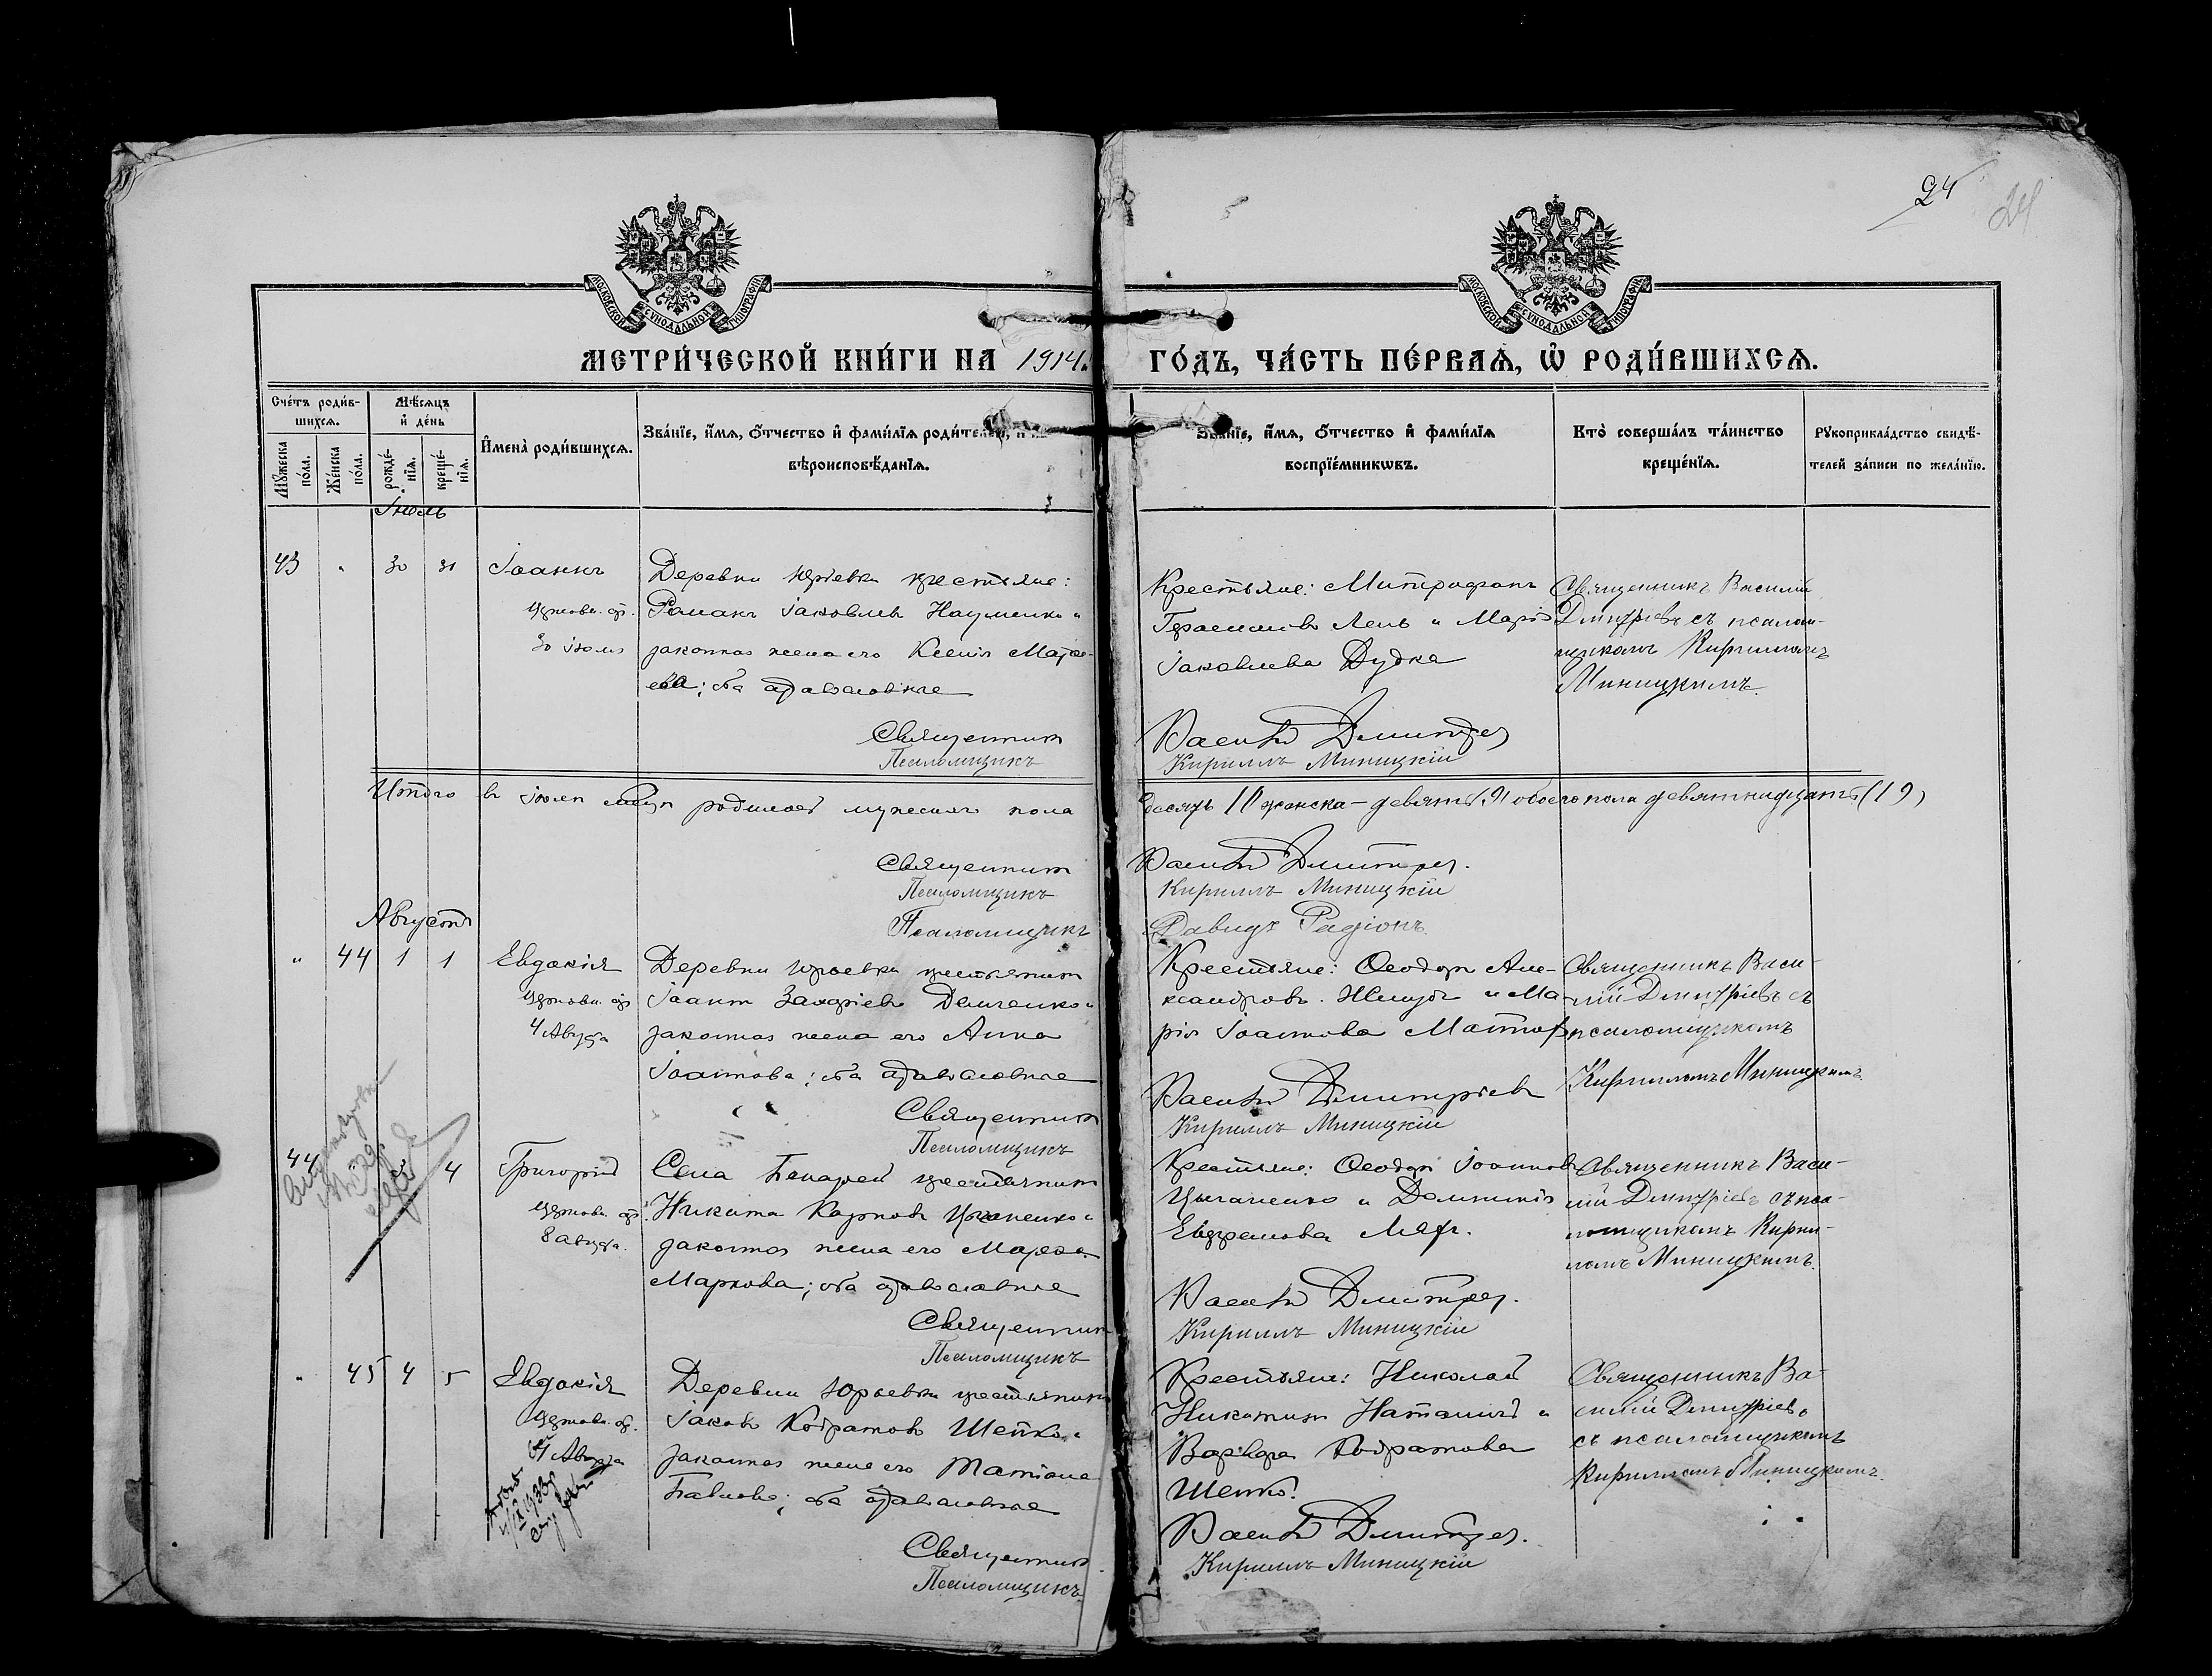 24
24
МОСКОВСКОЙ СѴНОДАЛЬНОЙ ТИПОГРАФІИ
МОСКОВСКОЙ СѴНОДАЛЬНОЙ ТИПОГРАФІИ
МЕТРИ́ЧЕСКОЙ КНИ́ГИ НА 1914
ГО́ДЪ, ЧА́СТЬ ПЕ́РВАѦ, Ѽ РОДИ́ВШИХСѦ.
Сче́тъ роди́в-
шихсѧ.
Мѣ́сѧцъ
и҆ де́нь
Мꙋ́жеска
по́ла.
Же́нска
по́ла.
рожде́-
нїѧ.
креще́-
нїѧ.
И҆мена̀ роди́вшихсѧ.
Зва́нїе, и҆́мѧ, ѻ҆́тчество и҆ фами́лїѧ роди́телей,
вѣроисповѣ́данїѧ.
Зва́нїе, и҆́мѧ, ѻ҆́тчество и҆ фами́лїѧ
воспрїе́мникѡвъ.
Кто̀ соверша́лъ та́инство
креще́нїѧ.
Рꙋкоприкла́дство свидѣ́-
телей за́писи по жела́нїю.
Іюль
43 " 30 31 Іоаннъ
30 Іюля
Деревни Юрьевки крестьяне:
Романъ Іаковлевъ Науменко и
законная жена его Ксенія
оба православные
Священникъ
Псаломщикъ
Крестьяне: Митрофанъ
Герасимовъ Лень и Марія
Іаковлева Дудка
Василій Дмитріев
Кириллъ Миницкій
Священникъ Василій
Дмитріевъ съ псалом-
щикомъ Кирилломъ
Миницкимъ.
Итого въ Іюлѣ родилось мужескаго пола
десять 10 женска - девять 9 обоего пола девятнадцать (19)
Священникъ
Псаломщикъ
Псаломщикъ
Василій Дмитріев.
Кириллъ Миницкій
Давидъ Радіонъ.
Августъ
" 44 1 1 Евдокія
4 Августа
Деревни Юрьевки крестьянинъ
Іоаннъ Захаріевъ Демченко и
законная жена его Анна
Іоаннова; оба православные
Священникъ
Псаломщикъ
Крестьяне: Ѳеодоръ Але-
ксандровъ и Ма-
рія Іоаннова
Василій Дмитріевъ
Кириллъ Миницкій
Священникъ Васи-
лій Дмитріевъ съ
псаломщикомъ
Кирилломъ Миницкимъ
44 4 Григорій
8 августа.
Села крестьянинъ
Никита Карповъ Цыганенко и
законная жена его Марѳа
Маркова; оба православные
Священникъ
Псаломщикъ
Крестьяне: Ѳеодоръ Іоанновъ
Цыганенко и Домникія
Евфремова
Василій Дмитріев.
Кириллъ Миницкій
Священникъ Васи-
лій Дмитріевъ съ пса-
ломщикомъ Кирил-
ломъ Миницкимъ.
" 45 4 5 Евдокія
Августа
Деревни Юрьевки крестьянинъ
Іаковъ Кодратовъ Шепко и
законная жена его Татіана
Павлова; оба православные
Священникъ
Псаломщикъ
Крестьяне: Николай
Никитинъ и
Варвара Кодратова
Шепко.
Василій Дмитріев.
Кириллъ Миницкій
Священникъ Ва-
силій Дмитріевъ
съ псаломщикомъ
Кирилломъ Миницкимъ.